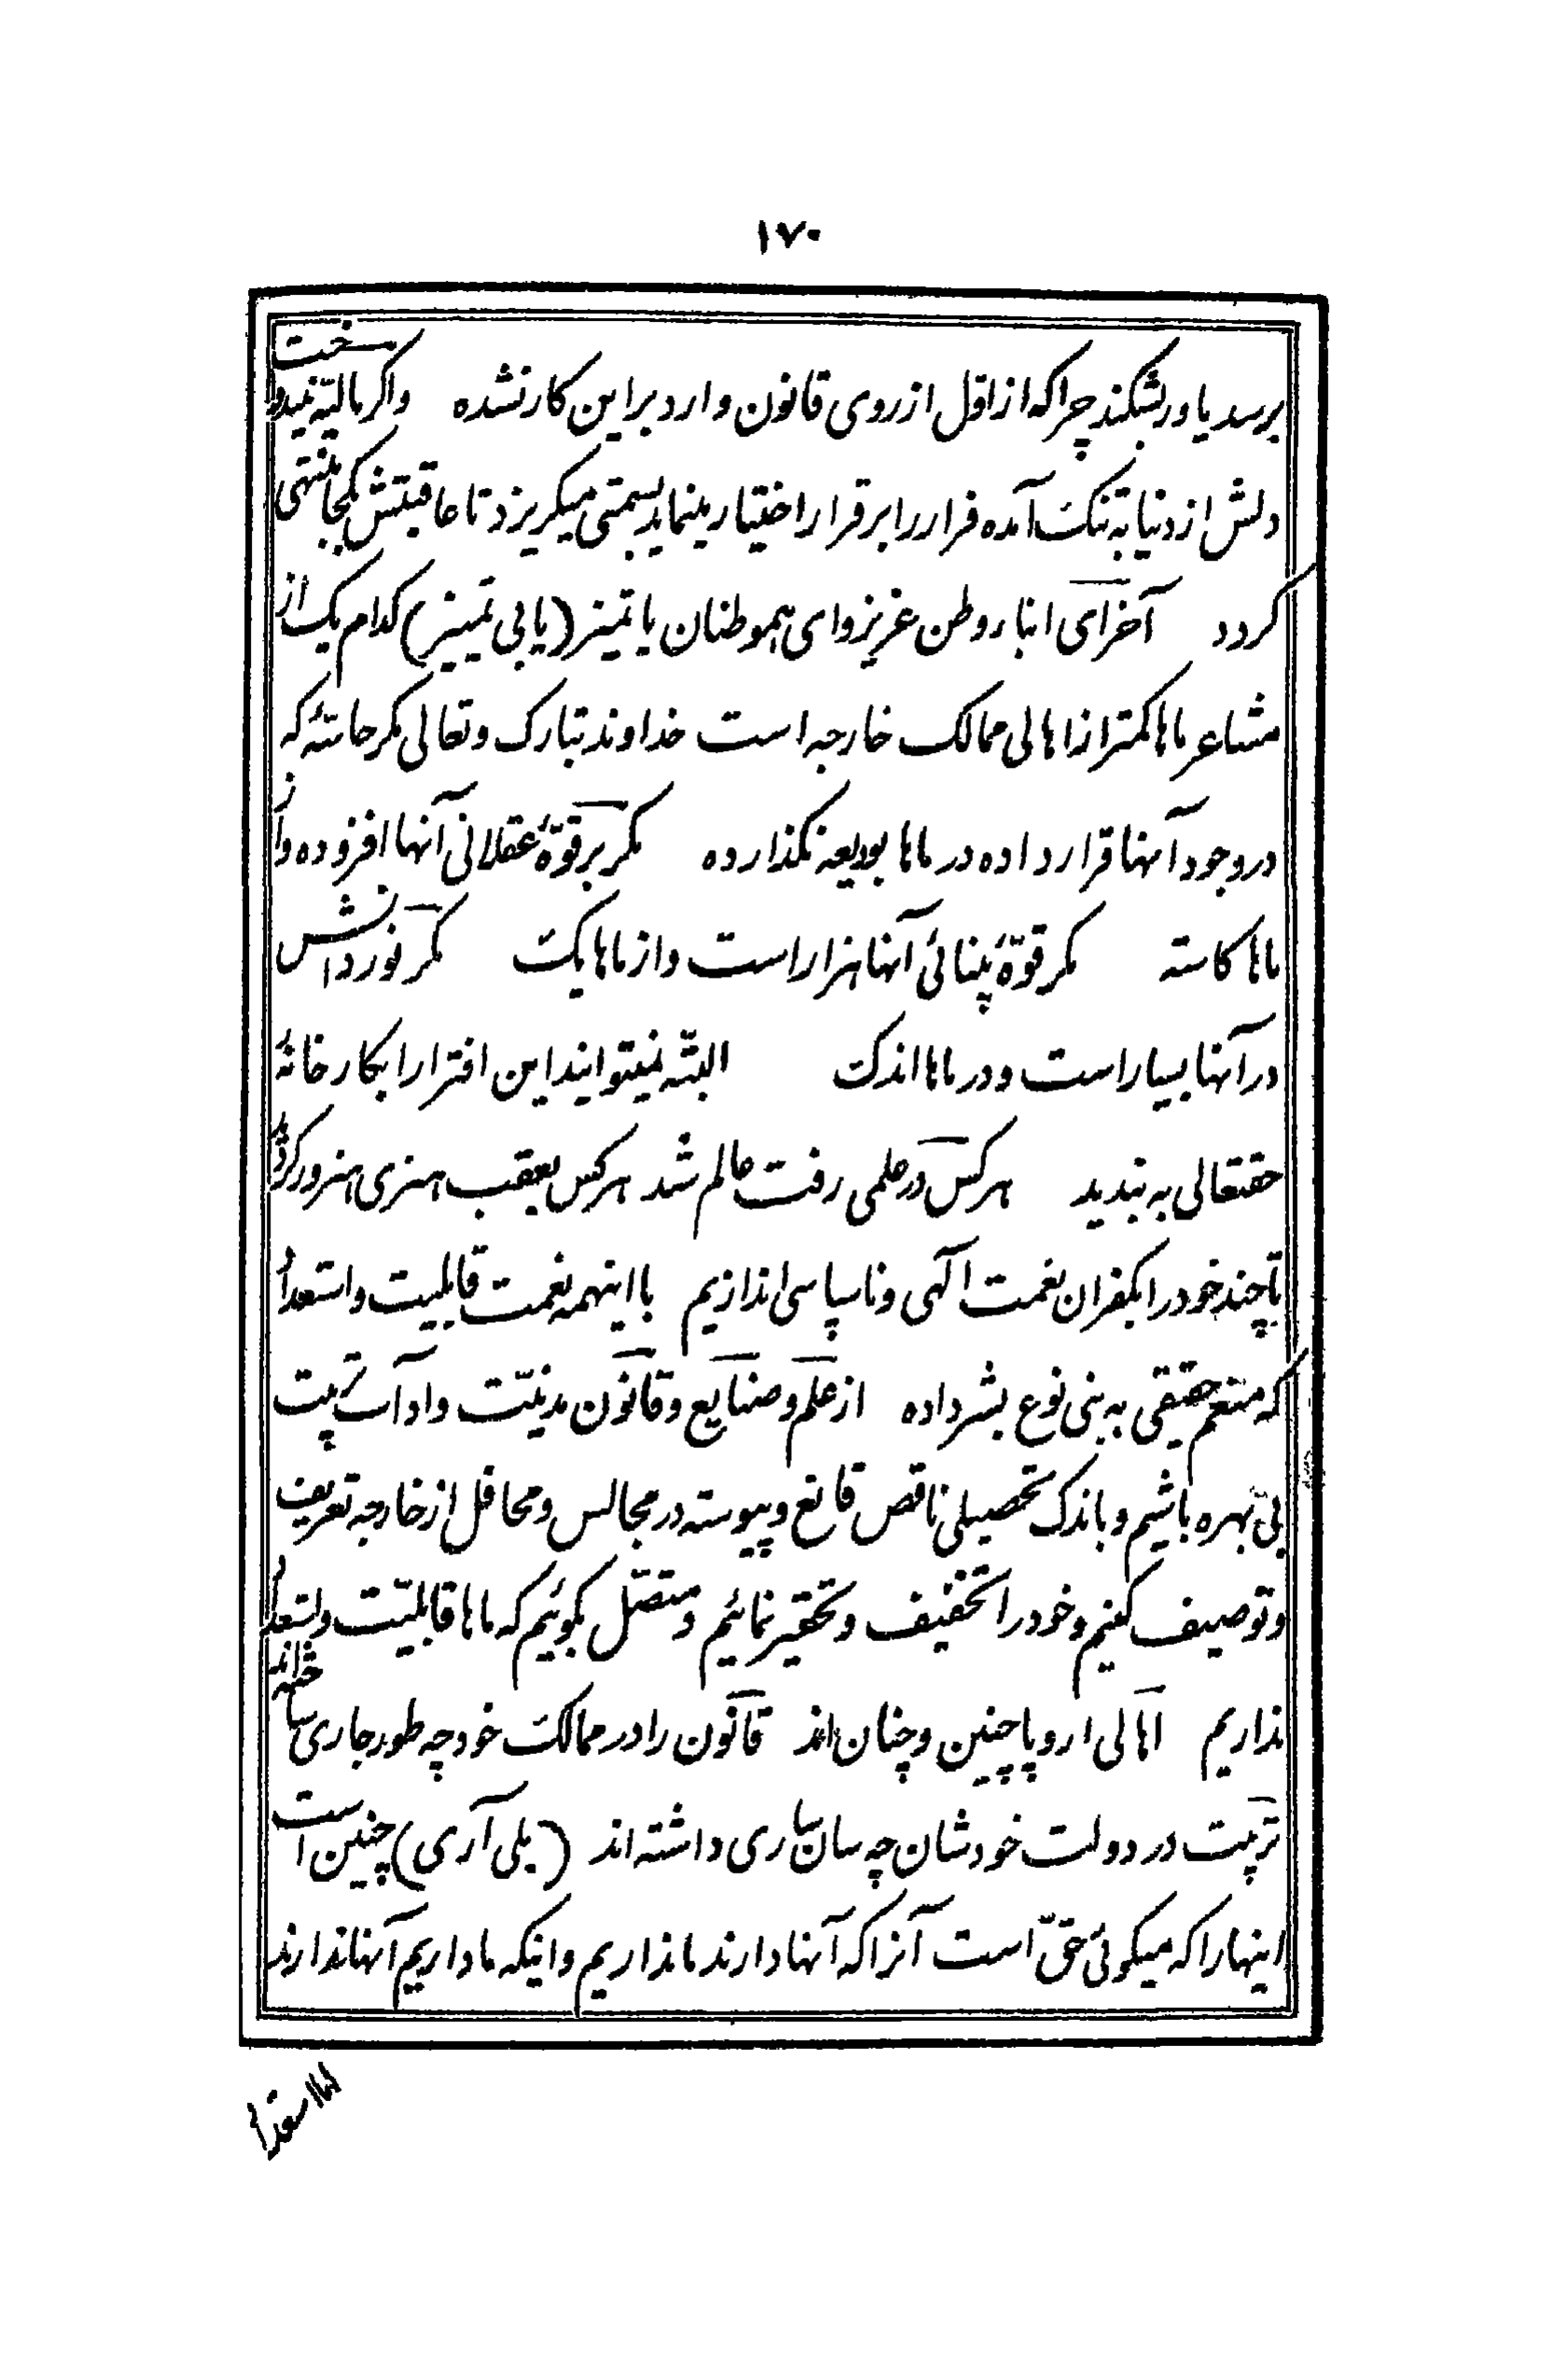 ۱۷۰
برسد یا ورشکند چرا که از اوّل از روی قانون وارد براین کار نشده واکر مالیّه نمیدا سخت
دلش از دنیا به تنک آمده فرار را برقرار اختیار مینماید بسمتی میکریزد تا عاقبتش بکجا منتهی
کردد آخر ای ابناء وطن عزیز وای هموطنان با تمیز (یا بی تمیز) کدام یک از
مشاعر ماها کمتر از اهالی ممالک خارجه است خداوند تبارک وتعالی مکر حاسّهٔ که
در وجود آنها قرار داده در ماها بودیعه نکذارده مکر بر قوّهٔ عقلانی آنها افزوده واز
ماها کاسته مکر قوّهٔ بینائی آنها هزار است واز ماها یک مکر نور دانش
در آنها بسیار است ودر ماها اندک البتّه نمیتوانید این افترا را بکارخانهٔ
حقتعالی به بندید هرکس در علمی رفت عالم شد هرکس بعقب هنری هنرور کردید
تا چند خود را بکفران نعمت الهی وناسپاسی اندازیم با اینهمه نعمت قابلیت واستعداد
که منعم حقیقی به بنی نوع بشر داده از علم وصنایع وقانون مدنیّت وآداب تربیت
بی بهره باشیم وباندک تحصیلی ناقص قانع وپیوسته در مجالس ومحافل از خارجه تعریف
وتوصیف کنیم وخود را تخفیف وتحقیر نمائیم ومتصّل بکوئیم که ماها قابلیّت واستعداد
نداریم اهالی اروپا چنین وچنان اند قانون را در ممالک خود چه طور جاری ساخته اند
تربیت در دولت خودشان چه سان ساری داشته اند (بلی آری) چنین است
اینها را که میکوئی حقّ است آنرا که آنها دارند ما نداریم واینکه ما داریم آنها ندارند